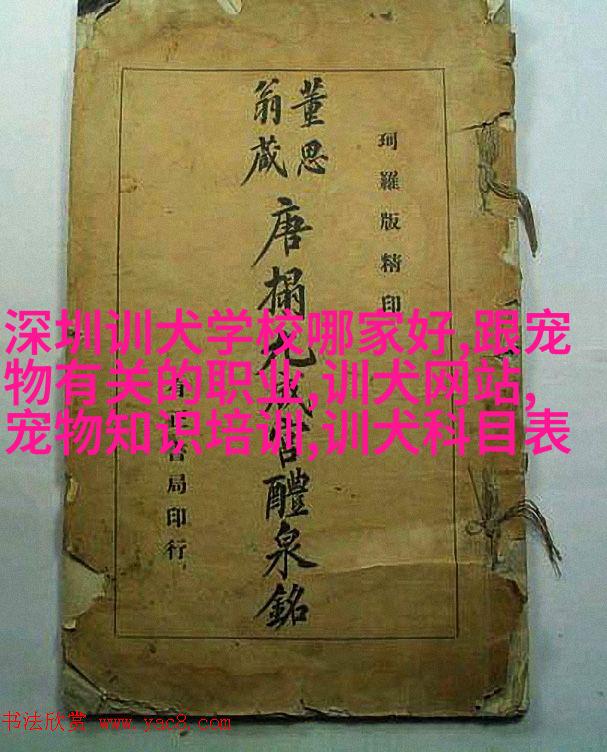 珂羅版精印
董思
翁藏
唐搨九醴泉銘
書局印行
深圳训犬学校哪家好,跟宠
物有关的职业,训犬网站,
宠物知识培训,训犬科目表
书法欣赏 www.yac8.com